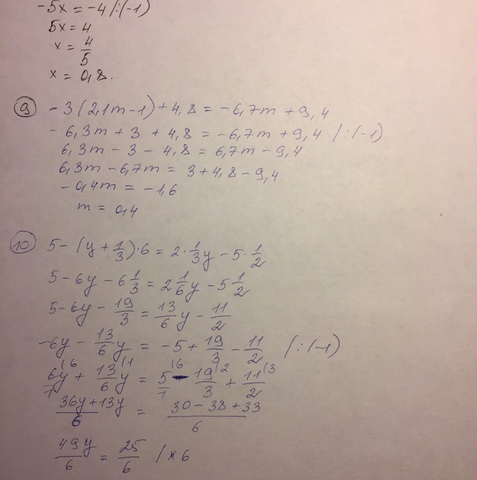 -5x = -4 / :(-1)
5x = 4
x = 4/5
x = 0,8.
9 -3(2,1m-1)+4,8 = -6,7m+9,4
-6,3m+3+4,8 = -6,7m+9,4 / :(-1)
6,3m-3-4,8 = 6,7m-9,4
6,3m-6,7m = 3+4,8-9,4
-0,4m = -1,6
m = 0,4
10 5-(y+1/3)·6 = 2·1/3y-5·1/2
5-6y-6 1/3 = 2 1/6y-5 1/2
5-6y-19/3 = 13/6y-11/2
-6y-13/6y = -5+19/3-11/2 / :(-1)
6y/1(6+13/6y(1 = 5/1(6-19/3(2+11/2(3
36y+13y/6 = 30-38+33/6
49y/6 = 25/6 / ×6